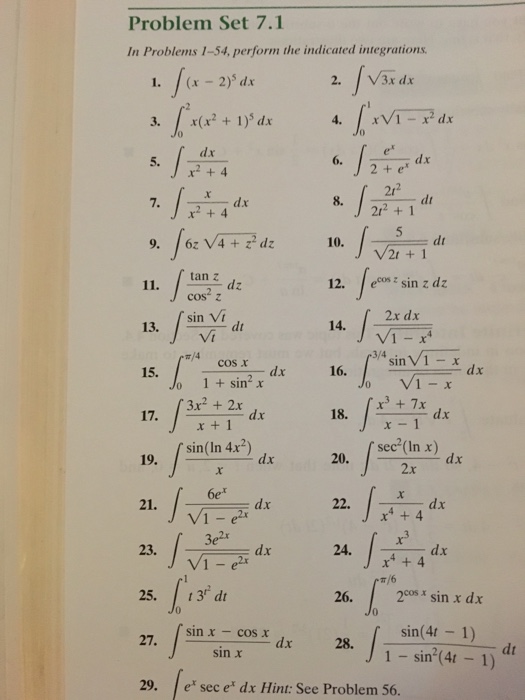 Problem Set 7.1
In Problems 1–54, perform the indicated integrations.
1. ∫(x − 2)⁵ dx 2. ∫√(3x) dx
3. ∫₀² x(x² + 1)⁵ dx 4. ∫₀¹ x√(1 − x²) dx
5. ∫ dx/(x² + 4) 6. ∫ eˣ/(2 + eˣ) dx
7. ∫ x/(x² + 4) dx 8. ∫ 2t²/(2t² + 1) dt
9. ∫6z √(4 + z²) dz 10. ∫ 5/√(2t + 1) dt
11. ∫ tan z/cos² z dz 12. ∫e^(cos z) sin z dz
13. ∫ sin √t/√t dt 14. ∫ 2x dx/√(1 − x⁴)
15. ∫₀^(π/4) cos x/(1 + sin² x) dx 16. ∫₀^(3/4) sin√(1 − x)/√(1 − x) dx
17. ∫ (3x² + 2x)/(x + 1) dx 18. ∫ (x³ + 7x)/(x − 1) dx
19. ∫ sin(ln 4x²)/x dx 20. ∫ sec²(ln x)/2x dx
21. ∫ 6eˣ/√(1 − e²ˣ) dx 22. ∫ x/(x⁴ + 4) dx
23. ∫ 3e²ˣ/√(1 − e²ˣ) dx 24. ∫ x³/(x⁴ + 4) dx
25. ∫₀¹ t 3^(t²) dt 26. ∫₀^(π/6) 2^(cos x) sin x dx
27. ∫ (sin x − cos x)/sin x dx 28. ∫ sin(4t − 1)/(1 − sin²(4t − 1)) dt
29. ∫eˣ sec eˣ dx Hint: See Problem 56.